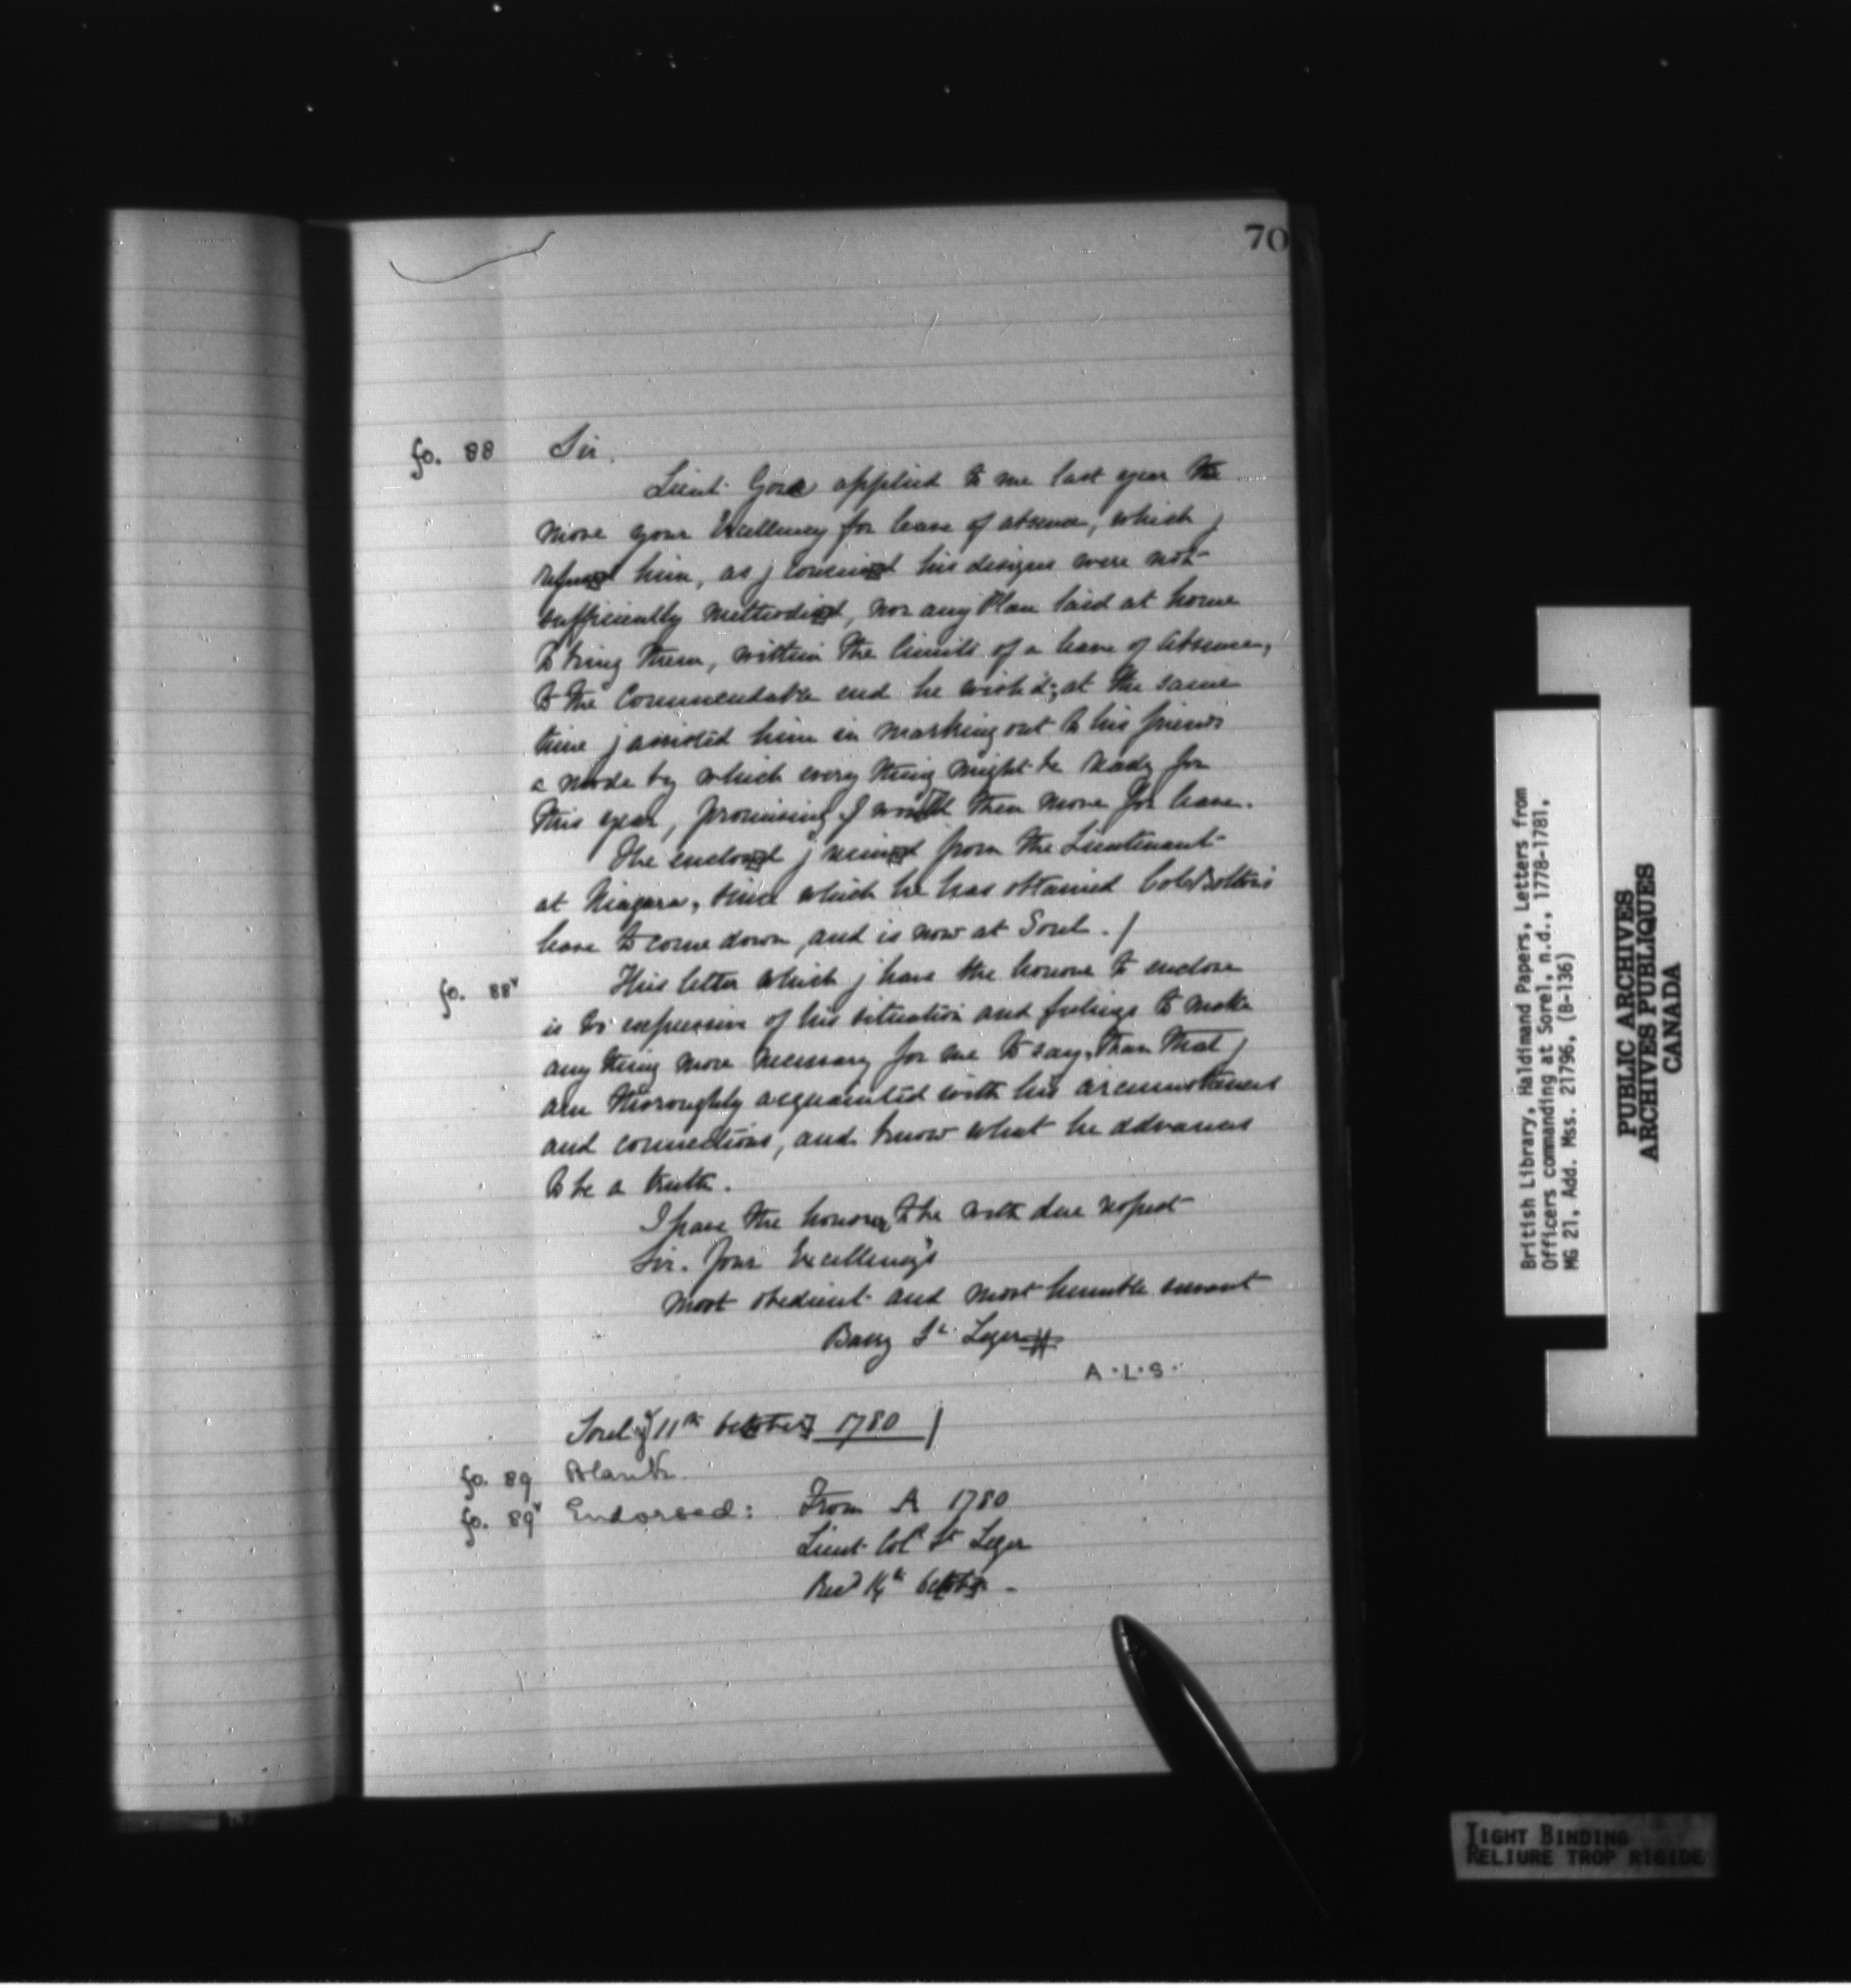 70
fo. 88 Sir.
Lieut. Gore applied to me last year to
move your Excellency for leave of absence, which j
refused him, as j conceived his designs were not
sufficiently methodized, nor any Plan laid at home
to bring them, within the limits of a leave of absence,
to the Commendable end he wish'd; at the same
time j assisted him in marking out to his friends
a mode by which every thing might be ready for
this year, promising I would then move for leave.
The enclosed j received from the Lieutenant
at Niagara, since which he has obtained Col. Bolton's
leave to come down, and is now at Sorel. /
fo. 88v This letter which j have the honour to enclose
is so expressive of his situation and feelings to make
any thing more necessary for me to say, than that j
am thoroughly acquainted with his circumstances
and connections, and know what he advances
to be a truth.
I have the honour to be with due respect
Sir. Your Excellency's
most obedient and most humble servant
Barry St. Leger
A.L.S.
Sorel ye 11th October 1780 /
fo. 89 Blank.
fo. 89v Endorsed: From A 1780
Lieut. Col St Leger
Recd 14th October -
British Library, Haldimand Papers, Letters from
Officers commanding at Sorel, n.d., 1778-1781,
MG 21, Add. Mss. 21796, (B-136)
PUBLIC ARCHIVES
ARCHIVES PUBLIQUES
CANADA
TIGHT BINDING
RELIURE TROP RIGIDE